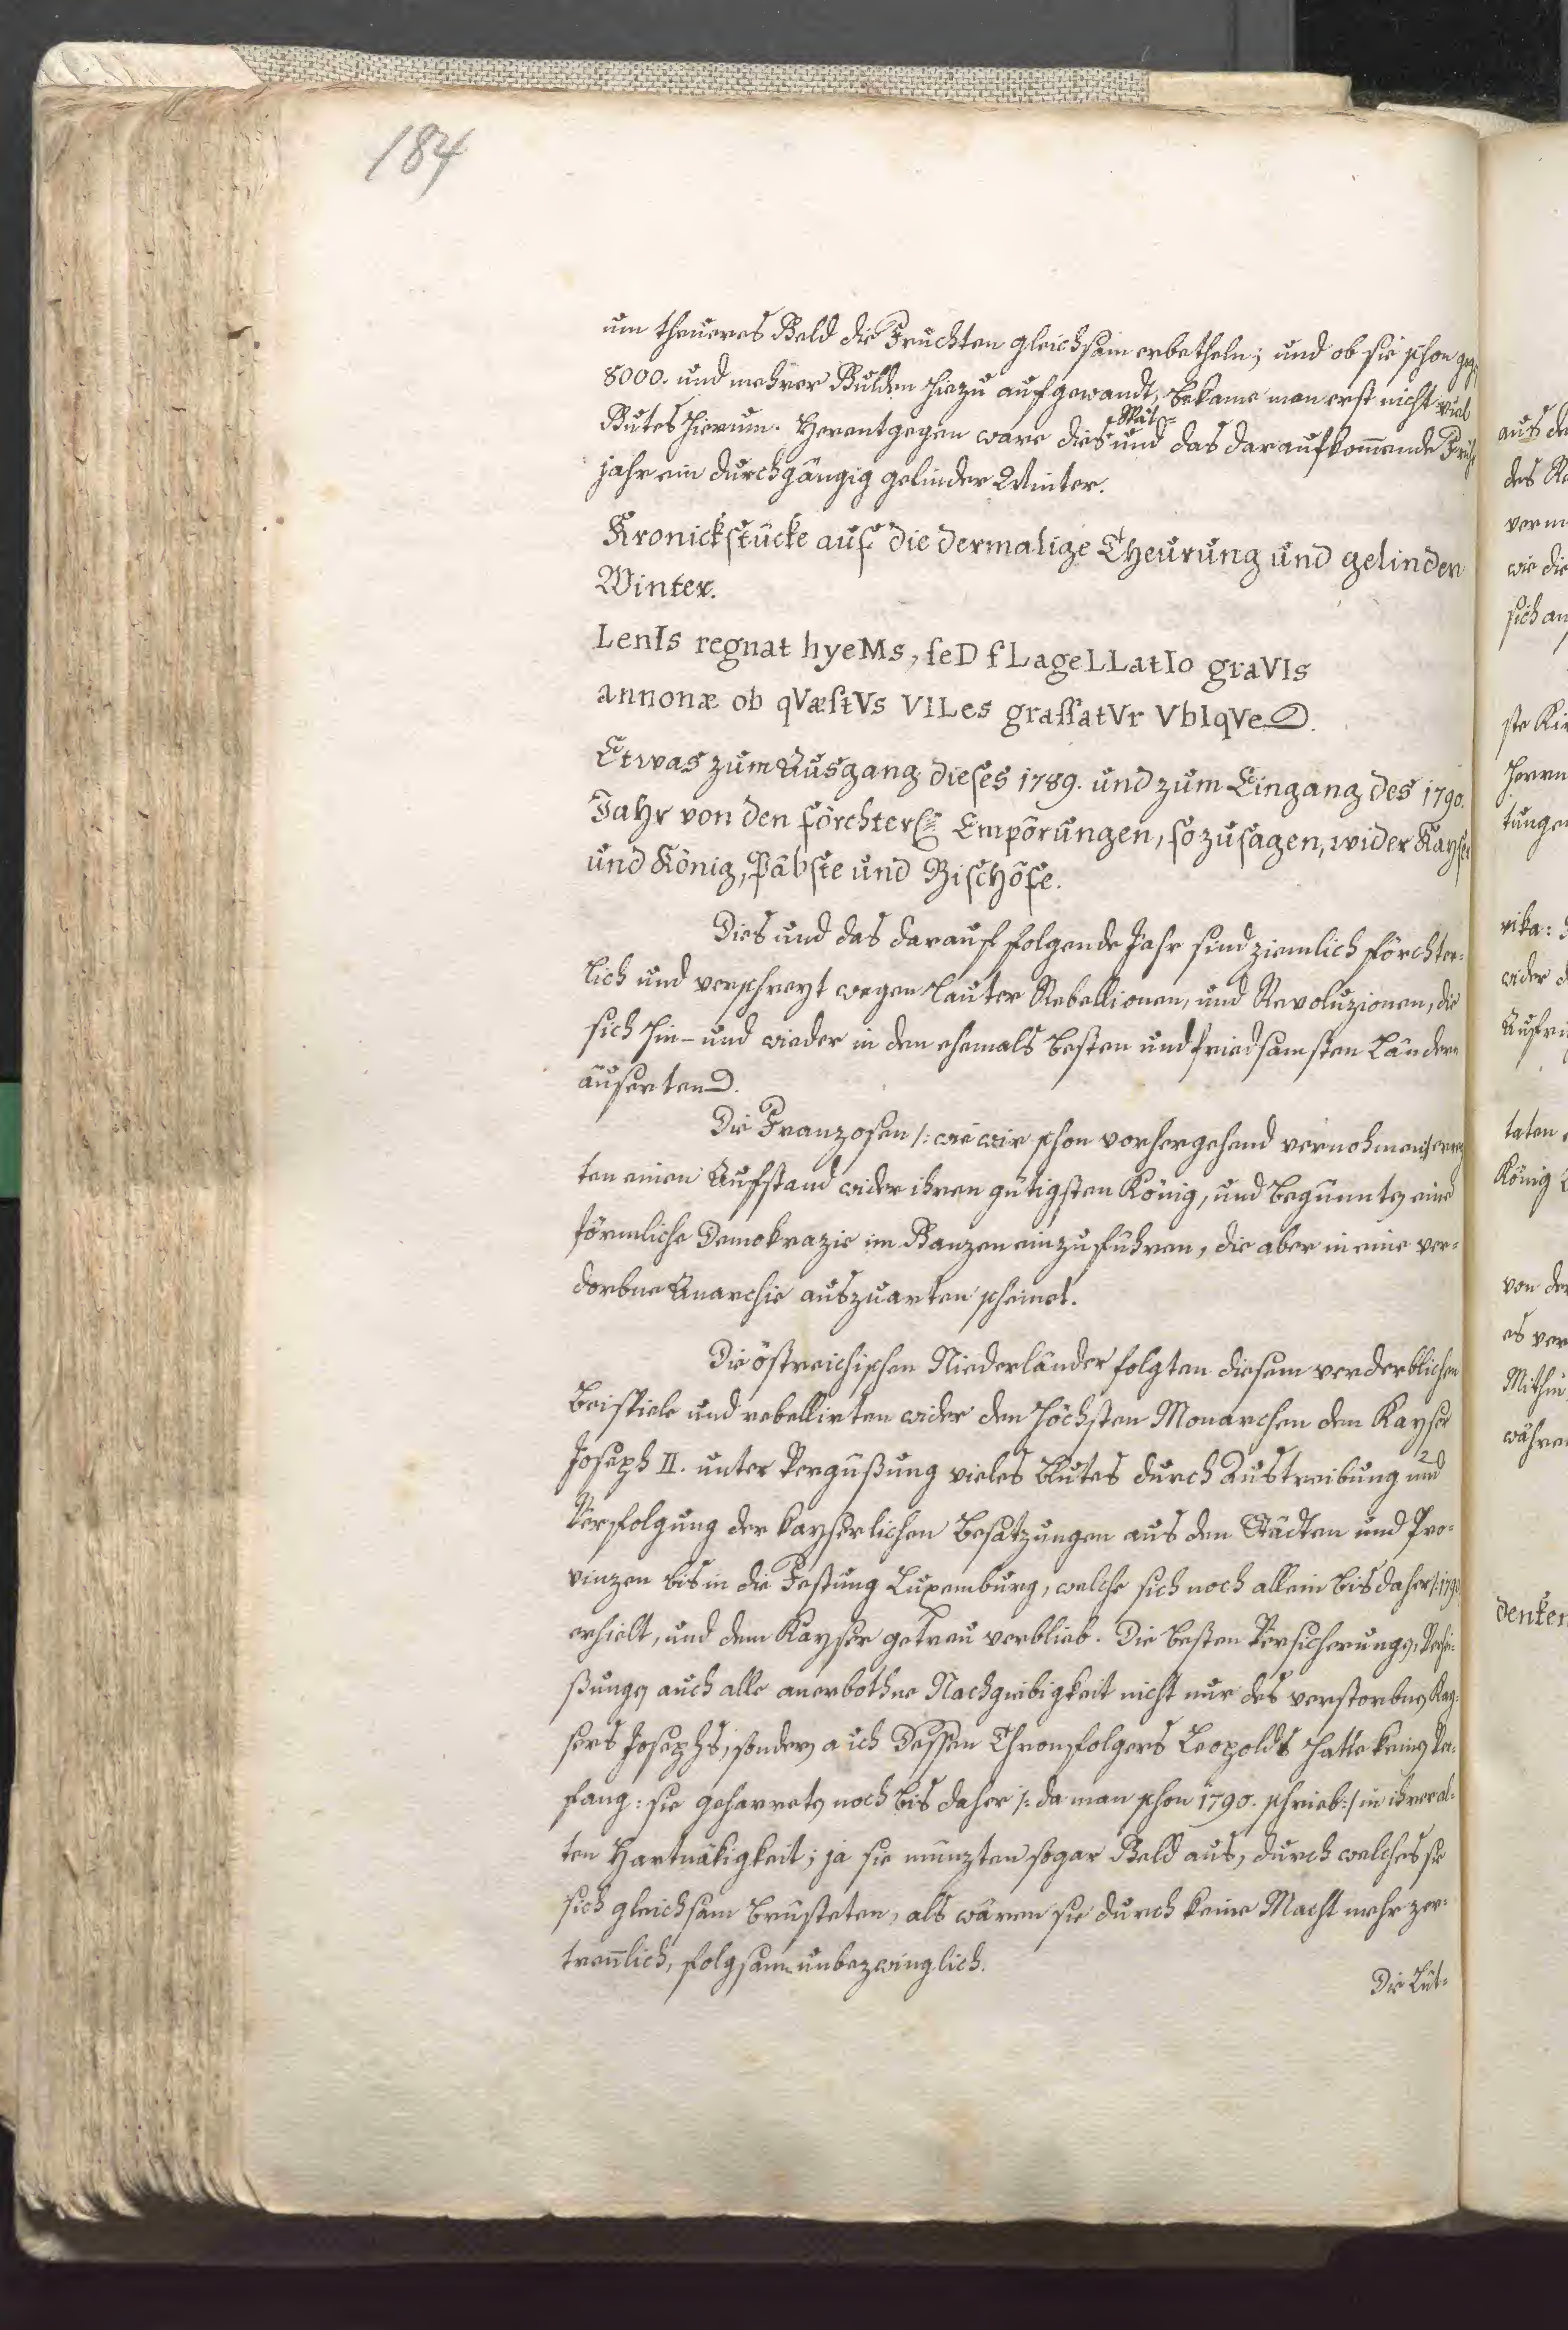 184
um theueres Geld die Fruchten gleichsam erbetheln; und ob sie schon geg:
8000. und mehrer Gulden hiezu aufgewandt, bekame man erst nicht viel
Spät-
Gutes hierum. Herentgegen ware dies und das darauf kom̄ende Früh
jahr ein durchgängig gelinder Winter.
Kronickstücke auf die dermalige Theurung und gelinden
Winter.
LenIs regnat hyeMs, ſeD fLageLLatIo graVIs
annonæ ob qVæſtVs VILes graſſatVr VbIqVe.
Etwas zum Ausgang dieses 1789. und zum Eingang des 1790.
Jahr von den förchterl. Empörungen, so zu sagen, wider Kayser
und König, Päbste und Bischöfe.
Dies und das darauf folgende Jahr sind ziemlich förchter-
lich und verschreyt wegen lauter Rebellionen, und Revoluzionen, die
sich hin- und wieder in den ehemals besten und friedsamsten Ländern
äuserten.
Die Franzosen /: wie wir schon vorhergehend vernohmen :/ erreg
ten einen Aufstand wider ihren gütigsten König, und begunnten eine
förmliche Demokrazie im Ganzen einzuführen, die aber in eine ver-
dorbne Anarchie auszuarten scheinet.
Die östreichischen Niederländer folgten diesem verderblichen
Beispiele und rebellirten wider den höchsten Monarchen den Kayser
Joseph II. unter Vergüßung vieles Blutes durch Austreibung und
Verfolgung der kayserlichen Besatzungen aus den Städten und Pro-
vinzen bis in die Festung Luxemburg, welche sich noch allein bis daher /: 1790
erhielt, und dem Kayser getreu verblieb. Die besten Versicherungen, Verhei-
ßungen auch alle anerbothne Nachgiebigkeit nicht nur des verstorbnen Kay-
sers Josephs, sondern auch Dessen Thronsfolgers Leopolds hatte keinen Ver-
fang: sie geharreten noch bis daher /: da man schon 1790. schrieb :/ in ihrer al-
ten Hartnäkigkeit; ja sie münzten sogar Geld aus, durch welches sie
sich gleichsam brüsteten, als wären sie durch keine Macht mehr zer-
tren̄lich, folgsam unbezwinglich.
Die Lüt-
aus de
des Re
verm
wie die
sich an
ste Kir
Herrn
tungen
rika:
wider d
Aufri
taten
König
von der
es ver
Mithin
währen
denken